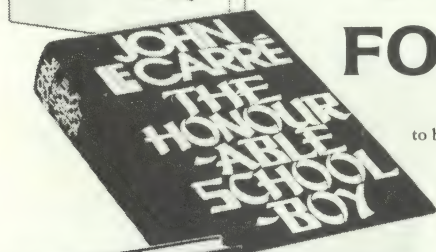 JOHN
LE CARRÉ
THE
HONOUR
-ABLE
SCHOOL
-BOY
FO
to b